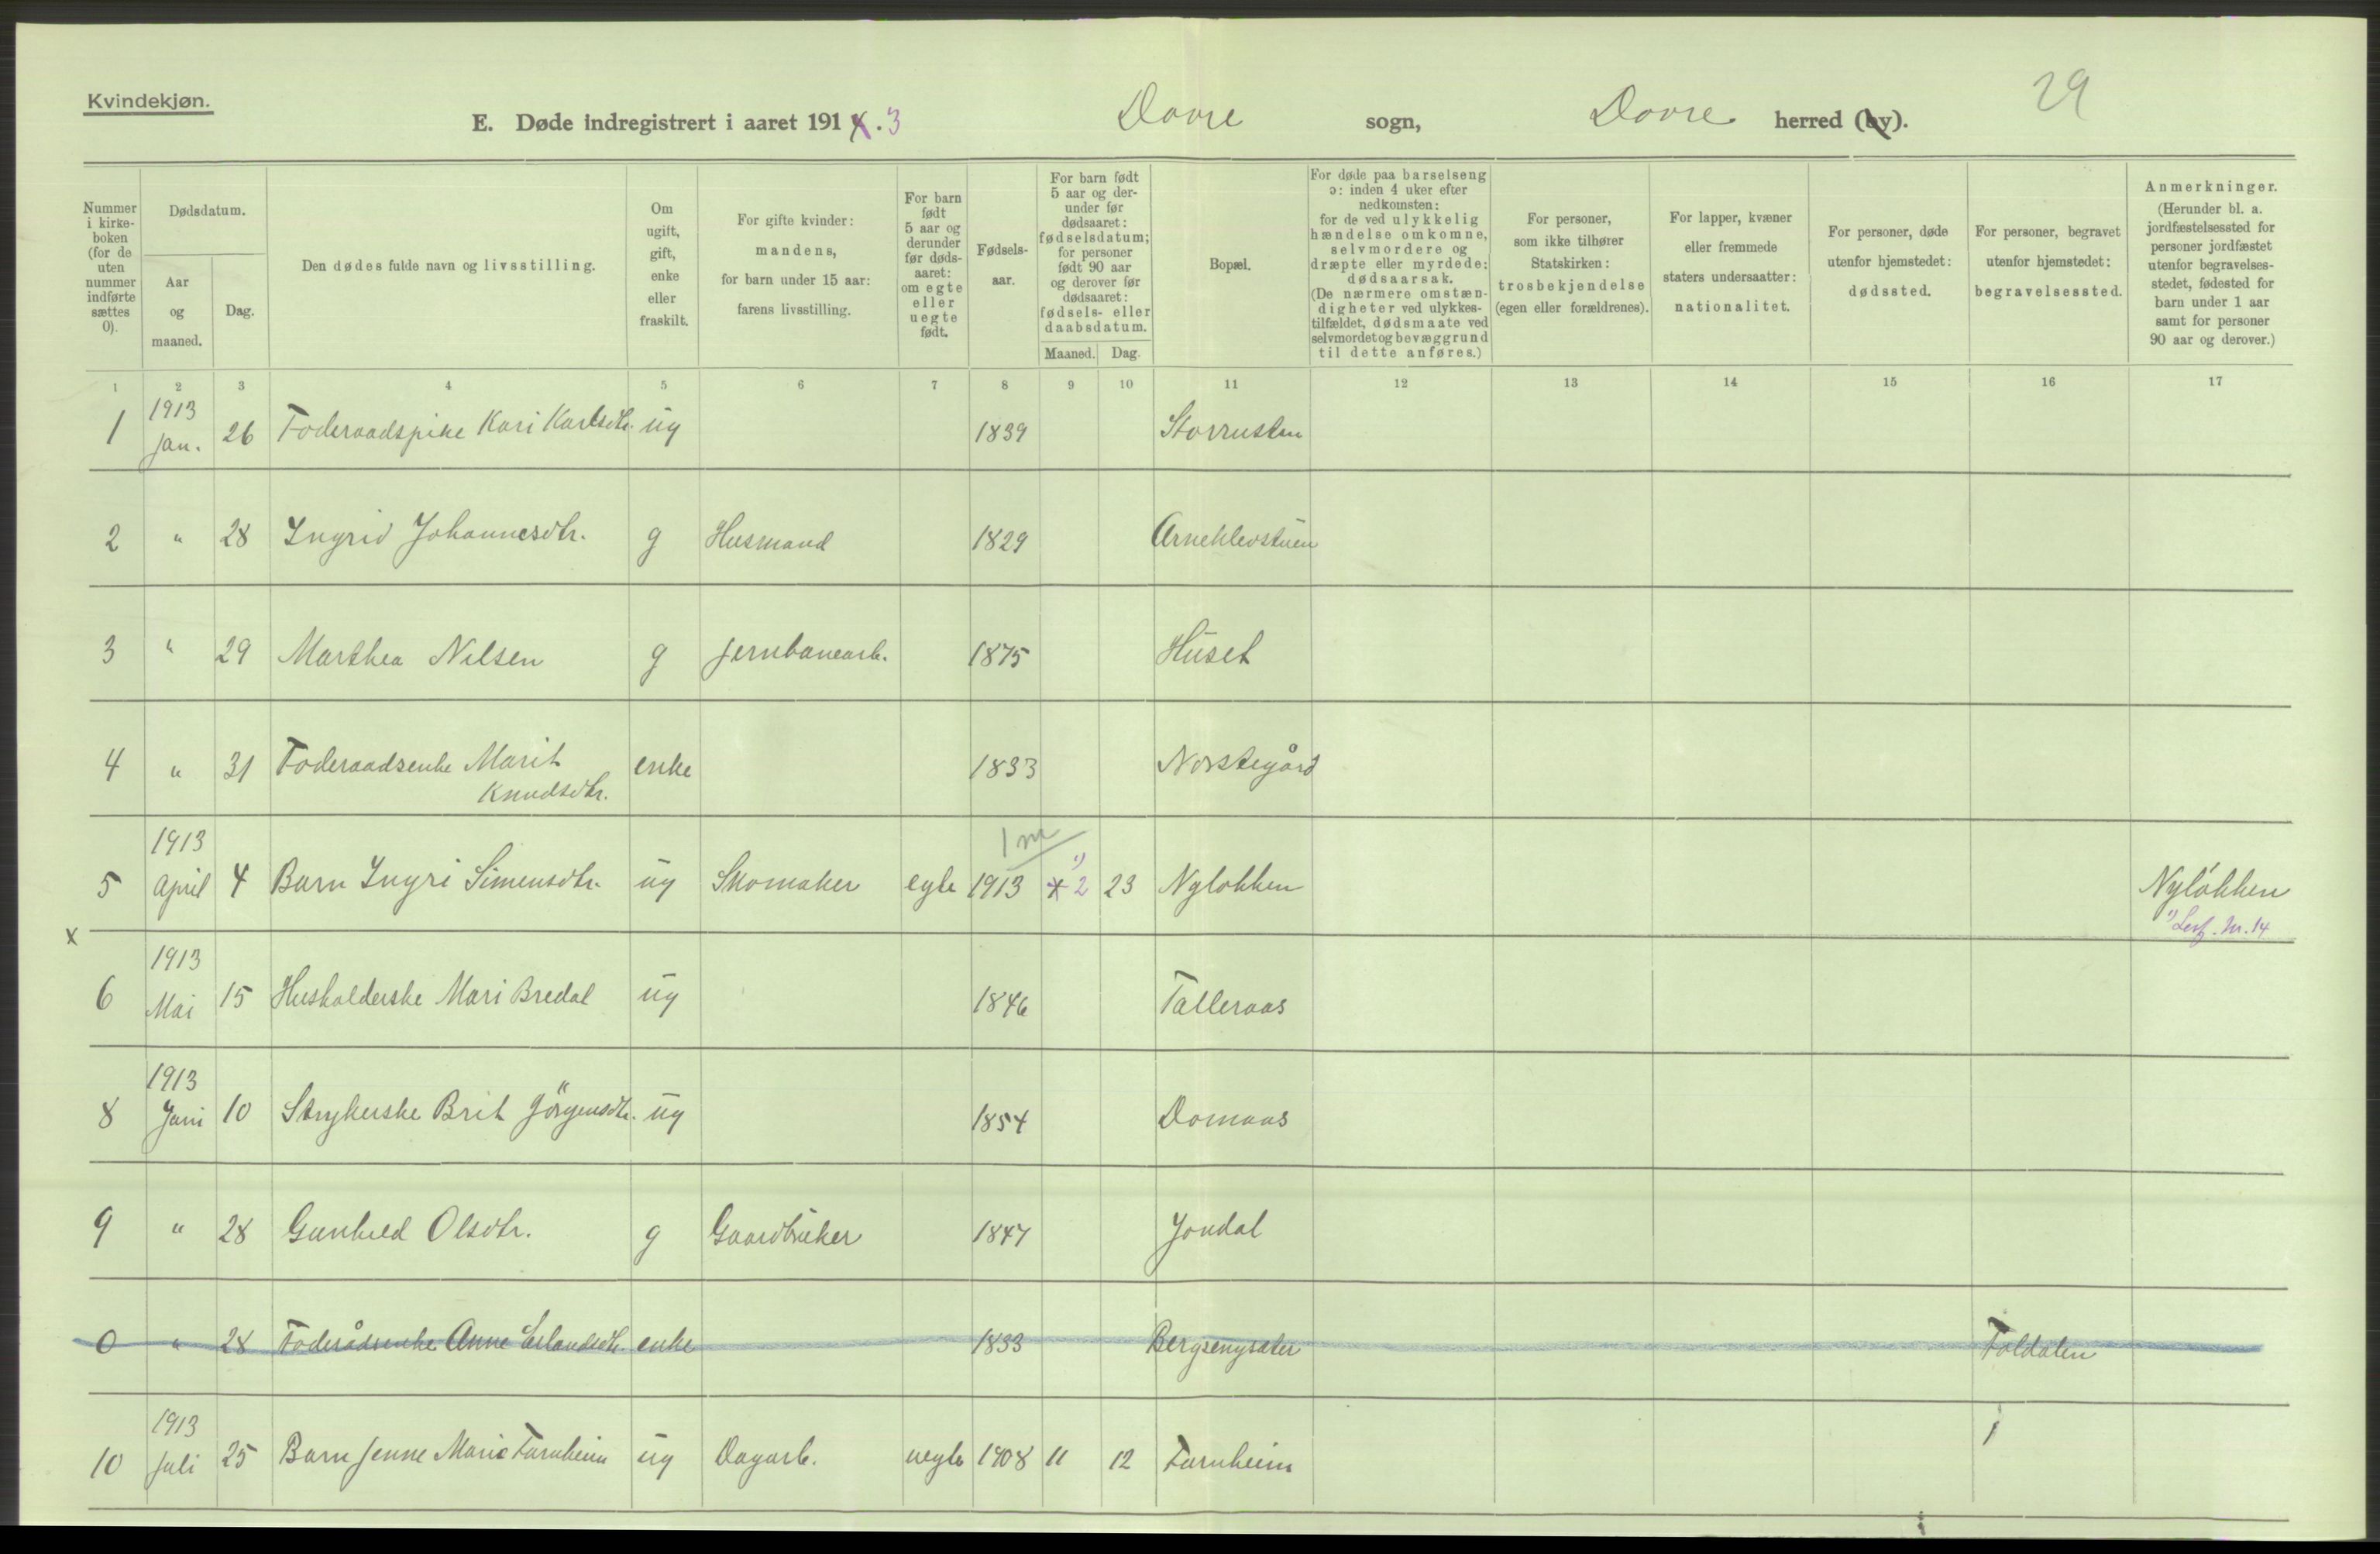 Kvindekjøn.
E. Døde indregistrert i aaret 191 . 3 Dovre sogn, Dovre herred (by). 29
Nummer i kirke-boken (for de uten nummer indførte sættes 0).
Dødsdatum.
Aar og maaned.
Dag.
Den dødes fulde navn og livsstilling.
Om ugift, gift, enke eller fraskilt.
For gifte kvinder: mandens, for barn under 15 aar: farens livsstilling.
For barn født 5 aar og derunder før døds-aaret: om egte eller uegte født.
Fødsels-aar.
For barn født 5 aar og der-under før dødsaaret: fødselsdatum; for personer født 90 aar og derover før dødsaaret: fødsels- eller daabsdatum.
Maaned. Dag.
Bopæl.
For døde paa barselseng ɔ: inden 4 uker efter nedkomsten: for de ved ulykkelig hændelse omkomne, selvmordere og dræpte eller myrdede: dødsaarsak. (De nærmere omstæn-digheter ved ulykkes-tilfældet, dødsmaate ved selvmordet og bevæggrund til dette anføres.)
For personer, som ikke tilhører Statskirken: trosbekjendelse (egen eller forældrenes).
For lapper, kvæner eller fremmede staters undersaatter: nationalitet.
For personer, døde utenfor hjemstedet: dødssted.
For personer, begravet utenfor hjemstedet: begravelsessted.
Anmerkninger. (Herunder bl. a. jordfæstelsessted for personer jordfæstet utenfor begravelses-stedet, fødested for barn under 1 aar samt for personer 90 aar og derover.)
1 2 3 4 5 6 7 8 9 10 11 12 13 14 15 16 17
1 1913 Jan. 26 Foderaadspike Kari Karlsdtr. ug 1839 Storrusten
2 " 28 Ingrid Johannesdtr. g Husmand 1829 Arneklevstuen
3 " 29 Marthea Nilsen g Jernbanearb. 1875 Huset
4 " 31 Foderaadsenke Marit Knudsdtr. enke 1833 Norstegård
1 m
5 1913 April 4 Barn Ingri Simensdtr. ug Skomaker egte 1913 1) 2 23 Nyløkken Nyløkken
1) Lev f. Nr. 14
x
6 1913 Mai 15 Husholderske Mari Bredal ug 1846 Talleraas
8 1913 Juni 10 Strykerske Brit Jörgensdtr. ug 1854 Domaas
9 " 28 Gunhild Olsdtr. g Gaardbruker 1847 Jondal
0 " 28 Foderådsenke Anne Erlandsdtr. enke 1833 Bergsenysæter Foldalen
10 1913 Juli 25 Barn Jenne Marie Turnheim ug Dagarb. uegte 1908 11 12 Turnheim 1